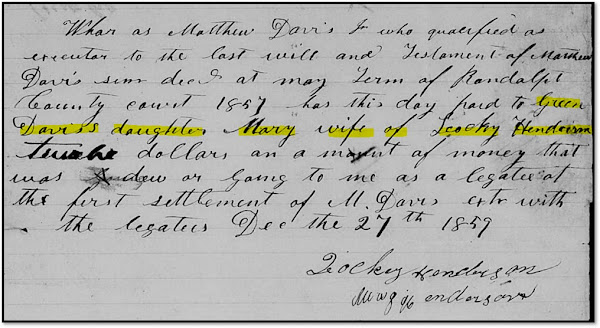 Whar as Matthew Davis Jr who qualified as
executor to the last will and Testament of Mathew
Davis sinr decd at may Term of Randolph
County court 1857 has this day paid to Green
Davis's daughter Mary wife of Zocky Henderson
twelve dollars an a mount of money that
was dew or going to me as a legatee at
the first settlement of M. Davis extr with
the legatees Dec the 27th 1859
Zocky Henderson
Mary Henderson